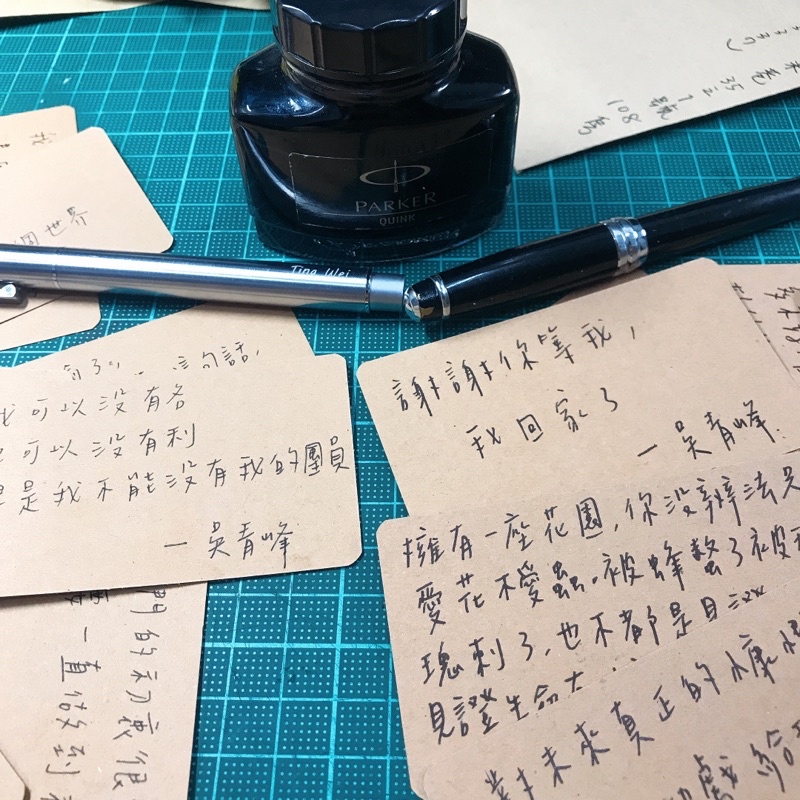 PARKER
QUINK
Ting Wei
108
世界
這句話,
我可以沒有名
可以沒有利
是我不能沒有我的團員
—吳青峰
謝謝你等我,
我回家了
—吳青峰.
擁有一座花園,你沒辦法只
愛花不愛蟲。被蜂螫了被玫
瑰刺了,也不都是
見證生命
對未來真正的慷慨
給
門的初衷很
一直做到